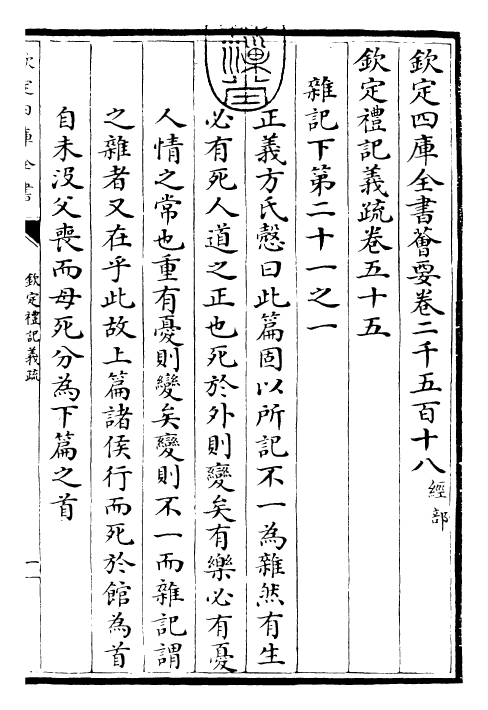 欽定四庫全書薈要卷二千五百十八 經部
欽定禮記義疏卷五十五
雜記下第二十一之一
正義方氏慤曰此篇固以所記不一為雜然有生
必有死人道之正也死於外則變矣有樂必有憂
人情之常也重有憂則變矣變則不一而雜記謂
之雜者又在乎此故上篇諸侯行而死於館為首
自未没父喪而母死分為下篇之首
欽定四庫全書
欽定禮記義疏
一